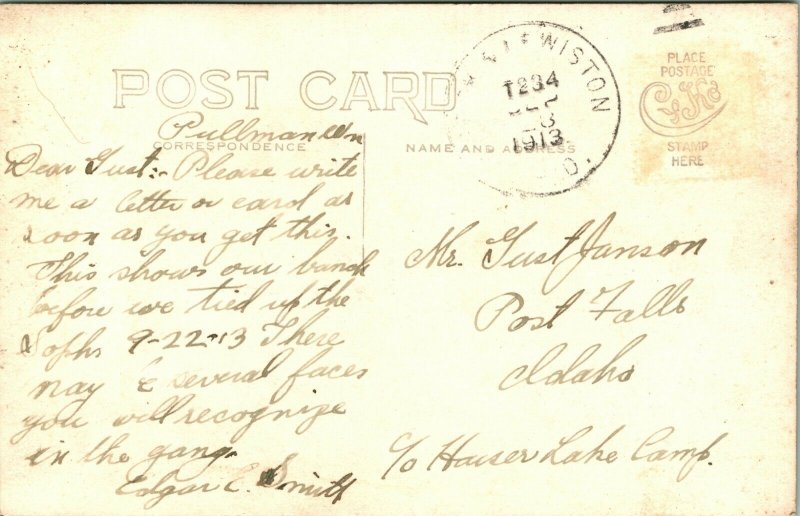 POST CARD
CORRESPONDENCE
NAME AND ADDRESS
PLACE
POSTAGE
CYKO
STAMP
HERE
LEWISTON
T234
1913
Pullman Wn
Dear Gust:- Please write
me a letter or card as
soon as you get this.
This shows our bunch
before we tied up the
Sophs 9-22-13 There
may be several faces
you will recognize
in the gang.
Edgar C. Smith
Mr. Gust Janson
Post Falls
Idaho
c/o Hauser Lake Camp.